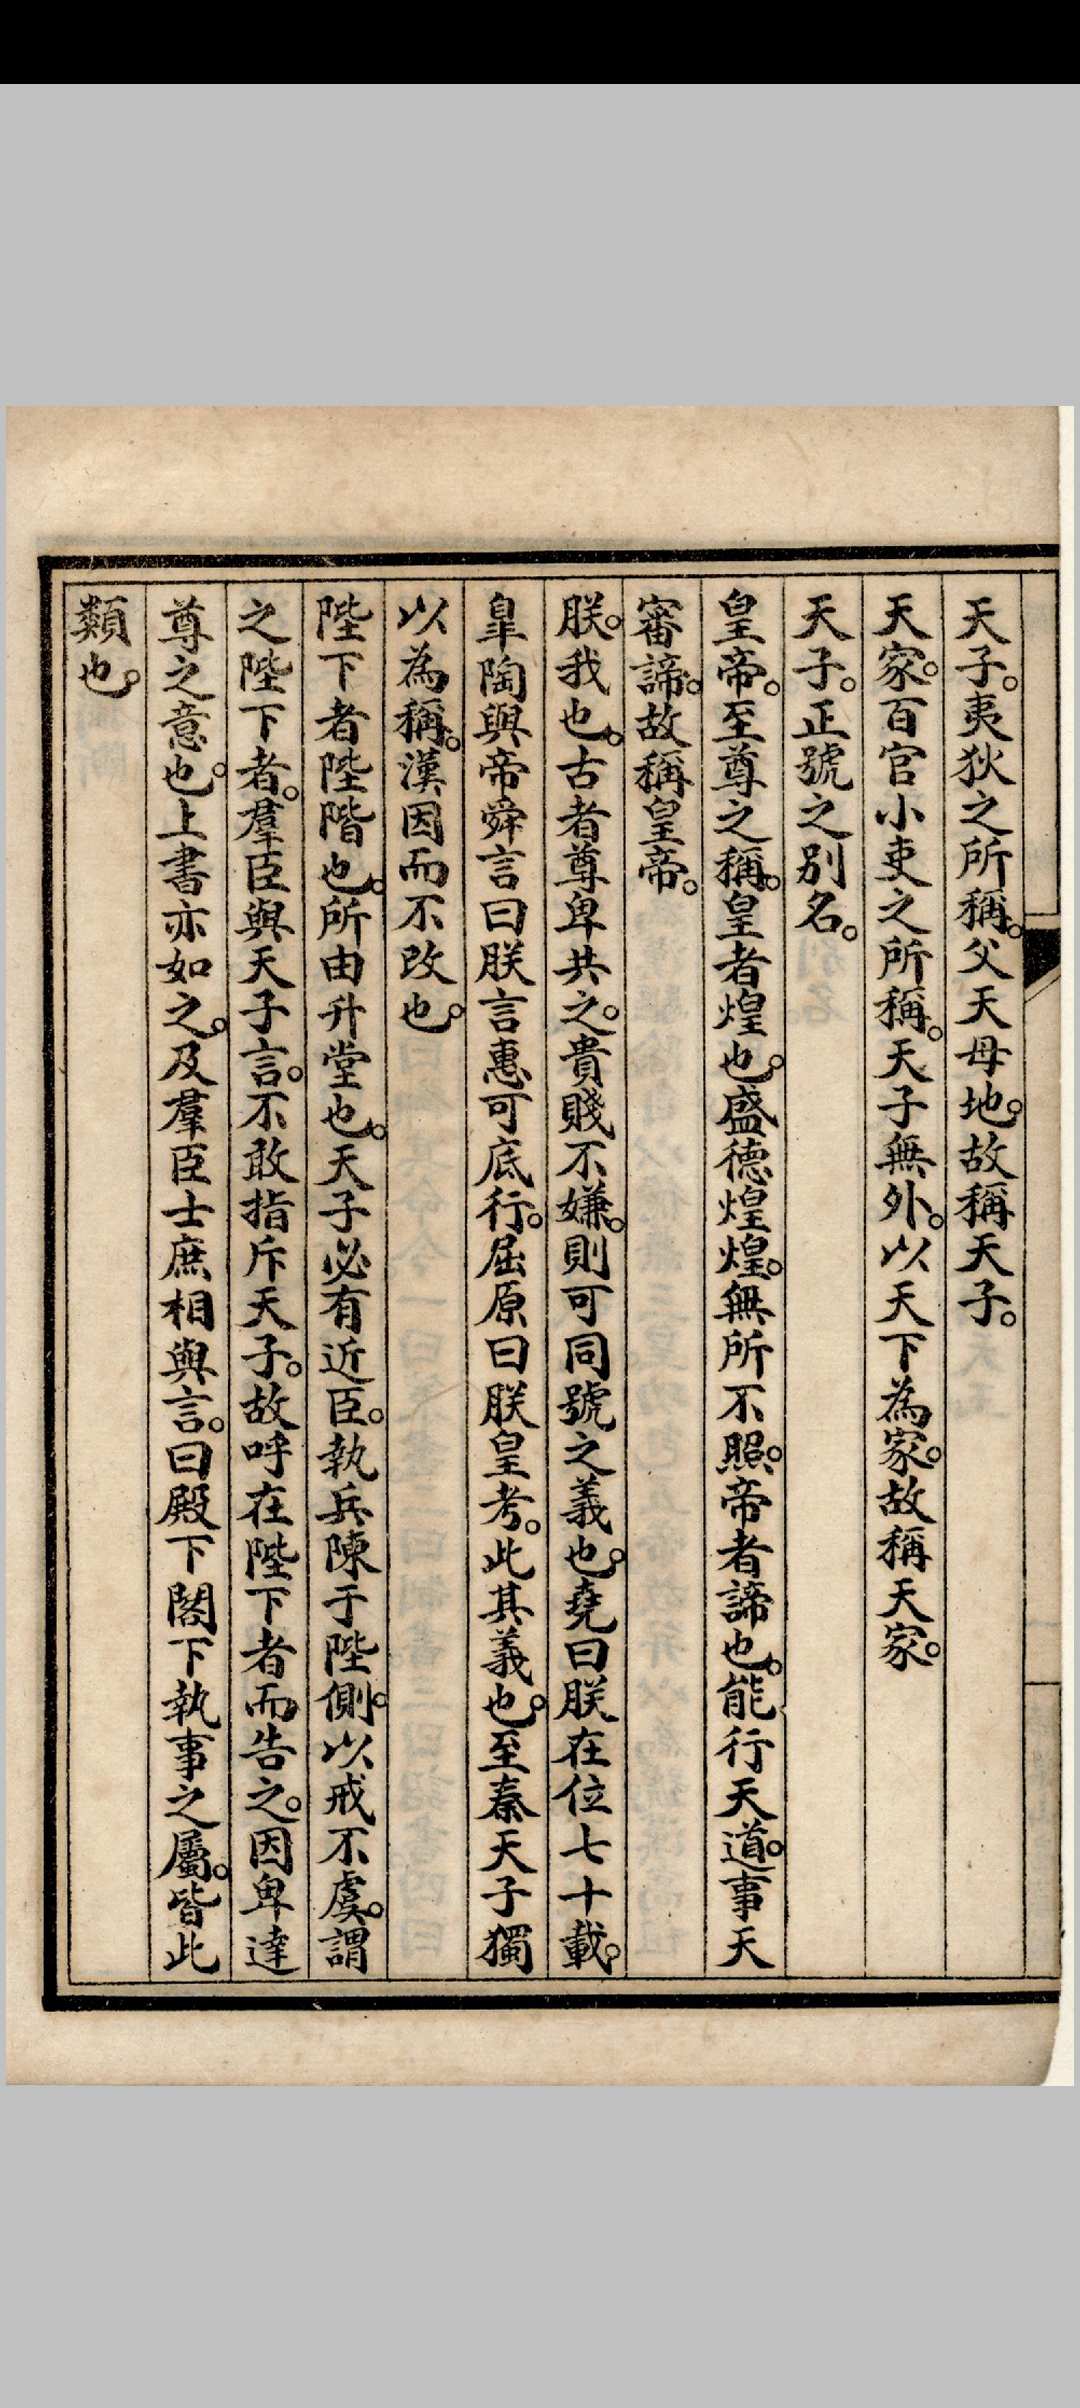 天子。夷狄之所稱。父天母地。故稱天子。
天家。百官小吏之所稱。天子無外。以天下為家。故稱天家。
天子。正號之別名。
皇帝。至尊之稱。皇者煌也。盛德煌煌。無所不照。帝者諦也。能行天道。事天
審諦。故稱皇帝。
朕。我也。古者尊卑共之。貴賤不嫌。則可同號之義也。堯曰朕在位七十載。
皐陶與帝舜言曰朕言惠可底行。屈原曰朕皇考。此其義也。至秦天子獨
以為稱。漢因而不改也。
陛下者陛階也。所由升堂也。天子必有近臣。執兵陳于陛側。以戒不虞。謂
之陛下者。羣臣與天子言。不敢指斥天子。故呼在陛下者而告之。因卑達
尊之意也。上書亦如之。及羣臣士庶相與言。曰殿下閣下執事之屬。皆此
類也。